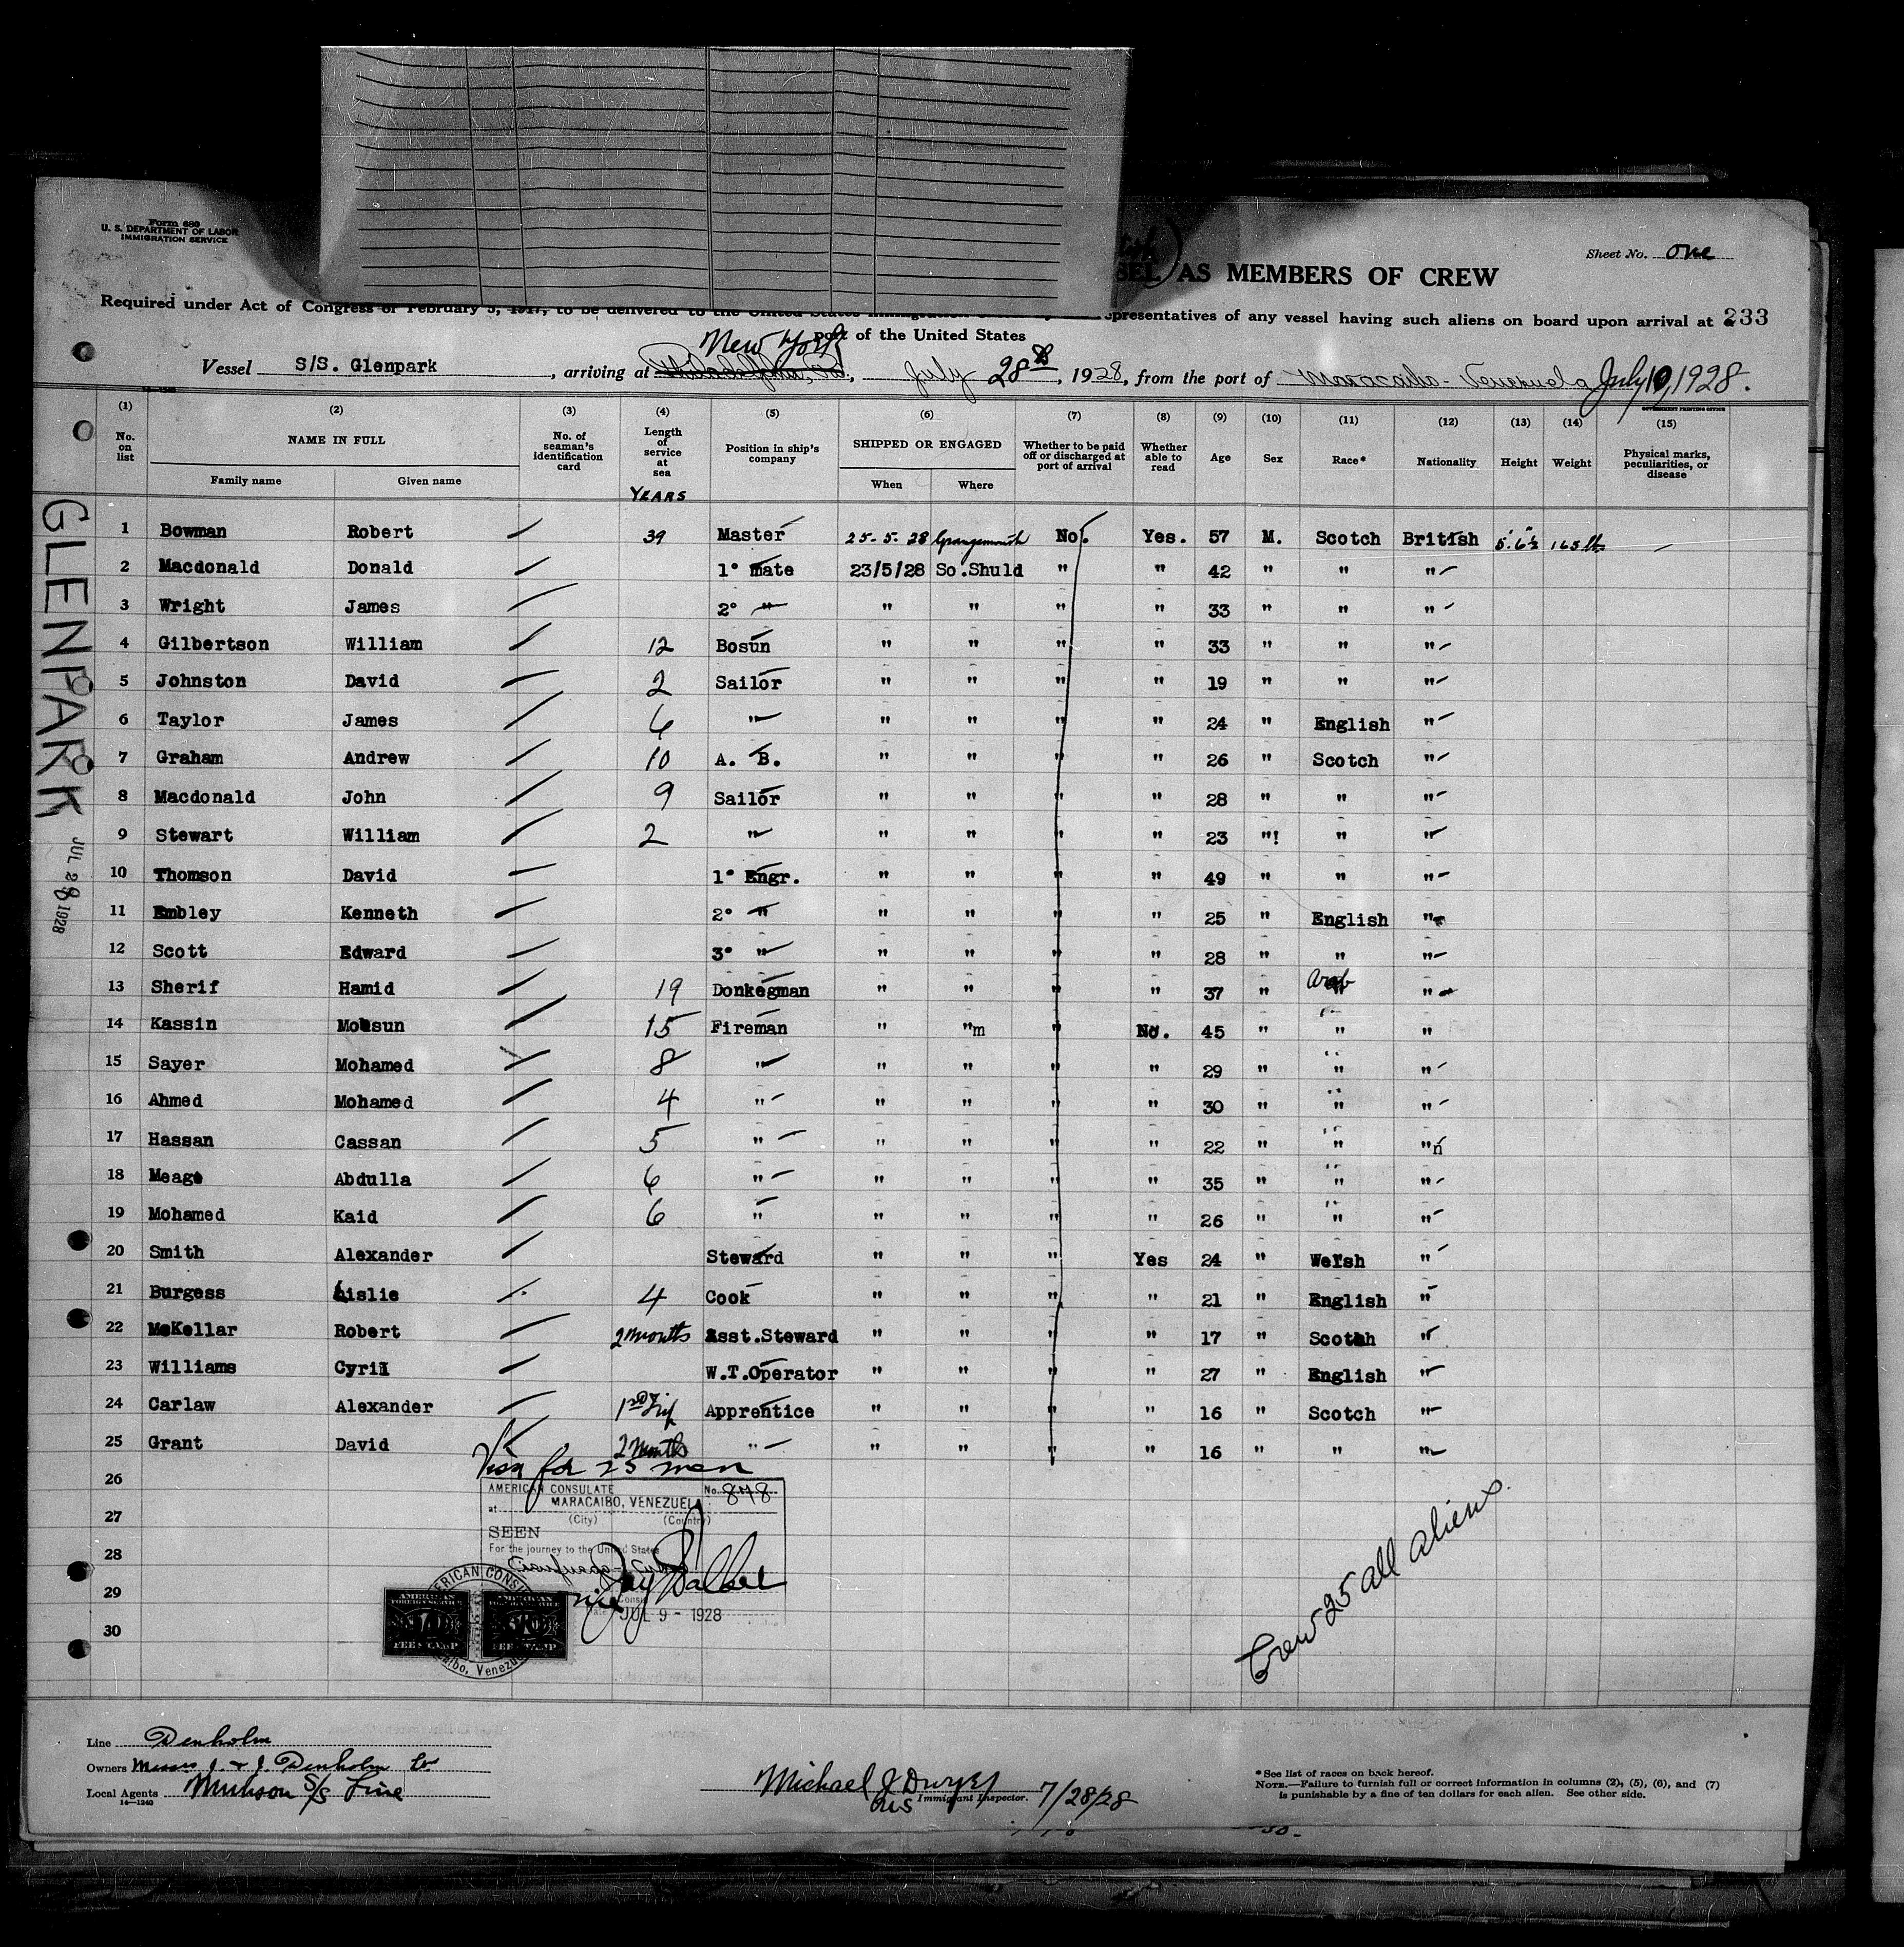 Form 680
U. S. DEPARTMENT OF LABOR
IMMIGRATION SERVICE
Sheet No. one
AS MEMBERS OF CREW
Required under Act of Congress of February 5, 1917, to be delivered to the United States representatives of any vessel having such aliens on board upon arrival at a
233
port of the United States
New York
Vessel S/S. Glenpark, arriving at Philadelphia, Pa., July 28th, 1928, from the port of Maracaibo - Venezuela July 10, 1928.
GOVERNMENT PRINTING OFFICE
(1) (2) (3) (4) (5) (6) (7) (8) (9) (10) (11) (12) (13) (14) (15)
No. on list NAME IN FULL No. of seaman's identification card Length of service at sea Position in ship's company SHIPPED OR ENGAGED Whether to be paid off or discharged at port of arrival Whether able to read Age Sex Race* Nationality Height Weight Physical marks, peculiarities, or disease
Family name Given name YEARS When Where
1 Bowman Robert 39 Master 25-5-28 Grangemouth No. Yes. 57 M. Scotch British 5.6½ 165 lbs
2 Macdonald Donald 1° mate 23/5/28 So.Shuld " " 42 " " "
3 Wright James 2° " " " " " 33 " " "
4 Gilbertson William 12 Bosun " " " " 33 " " "
5 Johnston David 2 Sailor " " " " 19 " " "
6 Taylor James 6 " " " " " 24 " English "
7 Graham Andrew 10 A. B. " " " " 26 " Scotch "
8 Macdonald John 9 Sailor " " " " 28 " " "
9 Stewart William 2 " " " " " 23 "! " "
10 Thomson David 1° Engr. " " " " 49 " " "
11 Embley Kenneth 2° " " " " " 25 " English "
12 Scott Edward 3° " " " " " 28 " " "
13 Sherif Hamid 19 Donkegman " " " " 37 " Arab "
14 Kassin Mohsun 15 Fireman " "m " No. 45 " " "
15 Sayer Mohamed 8 " " " " " 29 " " "
16 Ahmed Mohamed 4 " " " " " 30 " " "
17 Hassan Cassan 5 " " " " " 22 " " "n
18 Meage Abdulla 6 " " " " " 35 " " "
19 Mohamed Kaid 6 " " " " " 26 " " "
20 Smith Alexander Steward " " " Yes 24 " Welsh "
21 Burgess Lislie 4 Cook " " " " 21 " English "
22 McKellar Robert 2 months Asst.Steward " " " " 17 " Scotch "
23 Williams Cyril W.T.Operator " " " " 27 " English "
24 Carlaw Alexander 1st Trip Apprentice " " " " 16 " Scotch "
25 Grant David 2 months " " " " " 16 " " "
26
27
28
29
30
GLENPARK
JUL 28 1928
Visa for 25 men
AMERICAN CONSULATE No. 878
at MARACAIBO, VENEZUELA
(City) (Country)
SEEN
For the journey to the United States
JUL 9 - 1928
AMERICAN FOREIGN SERVICE
FEE STAMP
AMERICAN FOREIGN SERVICE
FEE STAMP
Crew 25 all aliens.
Line Denholm
Owners Messrs J. & J. Denholm Ltd
Local Agents Munson S/S Line
14—1240
Michael J Dwyer
Immigrant Inspector. 7/28/28
*See list of races on back hereof.
NOTE.—Failure to furnish full or correct information in columns (2), (5), (6), and (7)
is punishable by a fine of ten dollars for each alien. See other side.